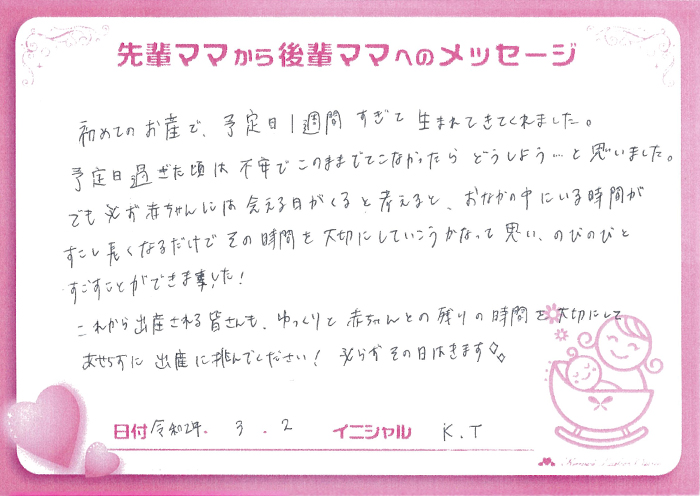 先輩ママから後輩ママへのメッセージ
初めてのお産で、予定日1週間すぎて生まれてきてくれました。
予定日過ぎた頃は不安でこのままでてこなかったらどうしよう…と思いました。
でも必ず赤ちゃんには会える日がくると考えると、おなかの中にいる時間が
すこし長くなるだけでその時間を大切にしていこうかなって思い、のびのびと
すごすことができました!
これから出産される皆さんも、ゆっくりと赤ちゃんとの残りの時間を大切にして
あせらずに出産に挑んでください! 必らずその日はきます
日付 令和2年. 3 . 2 イニシャル K.T